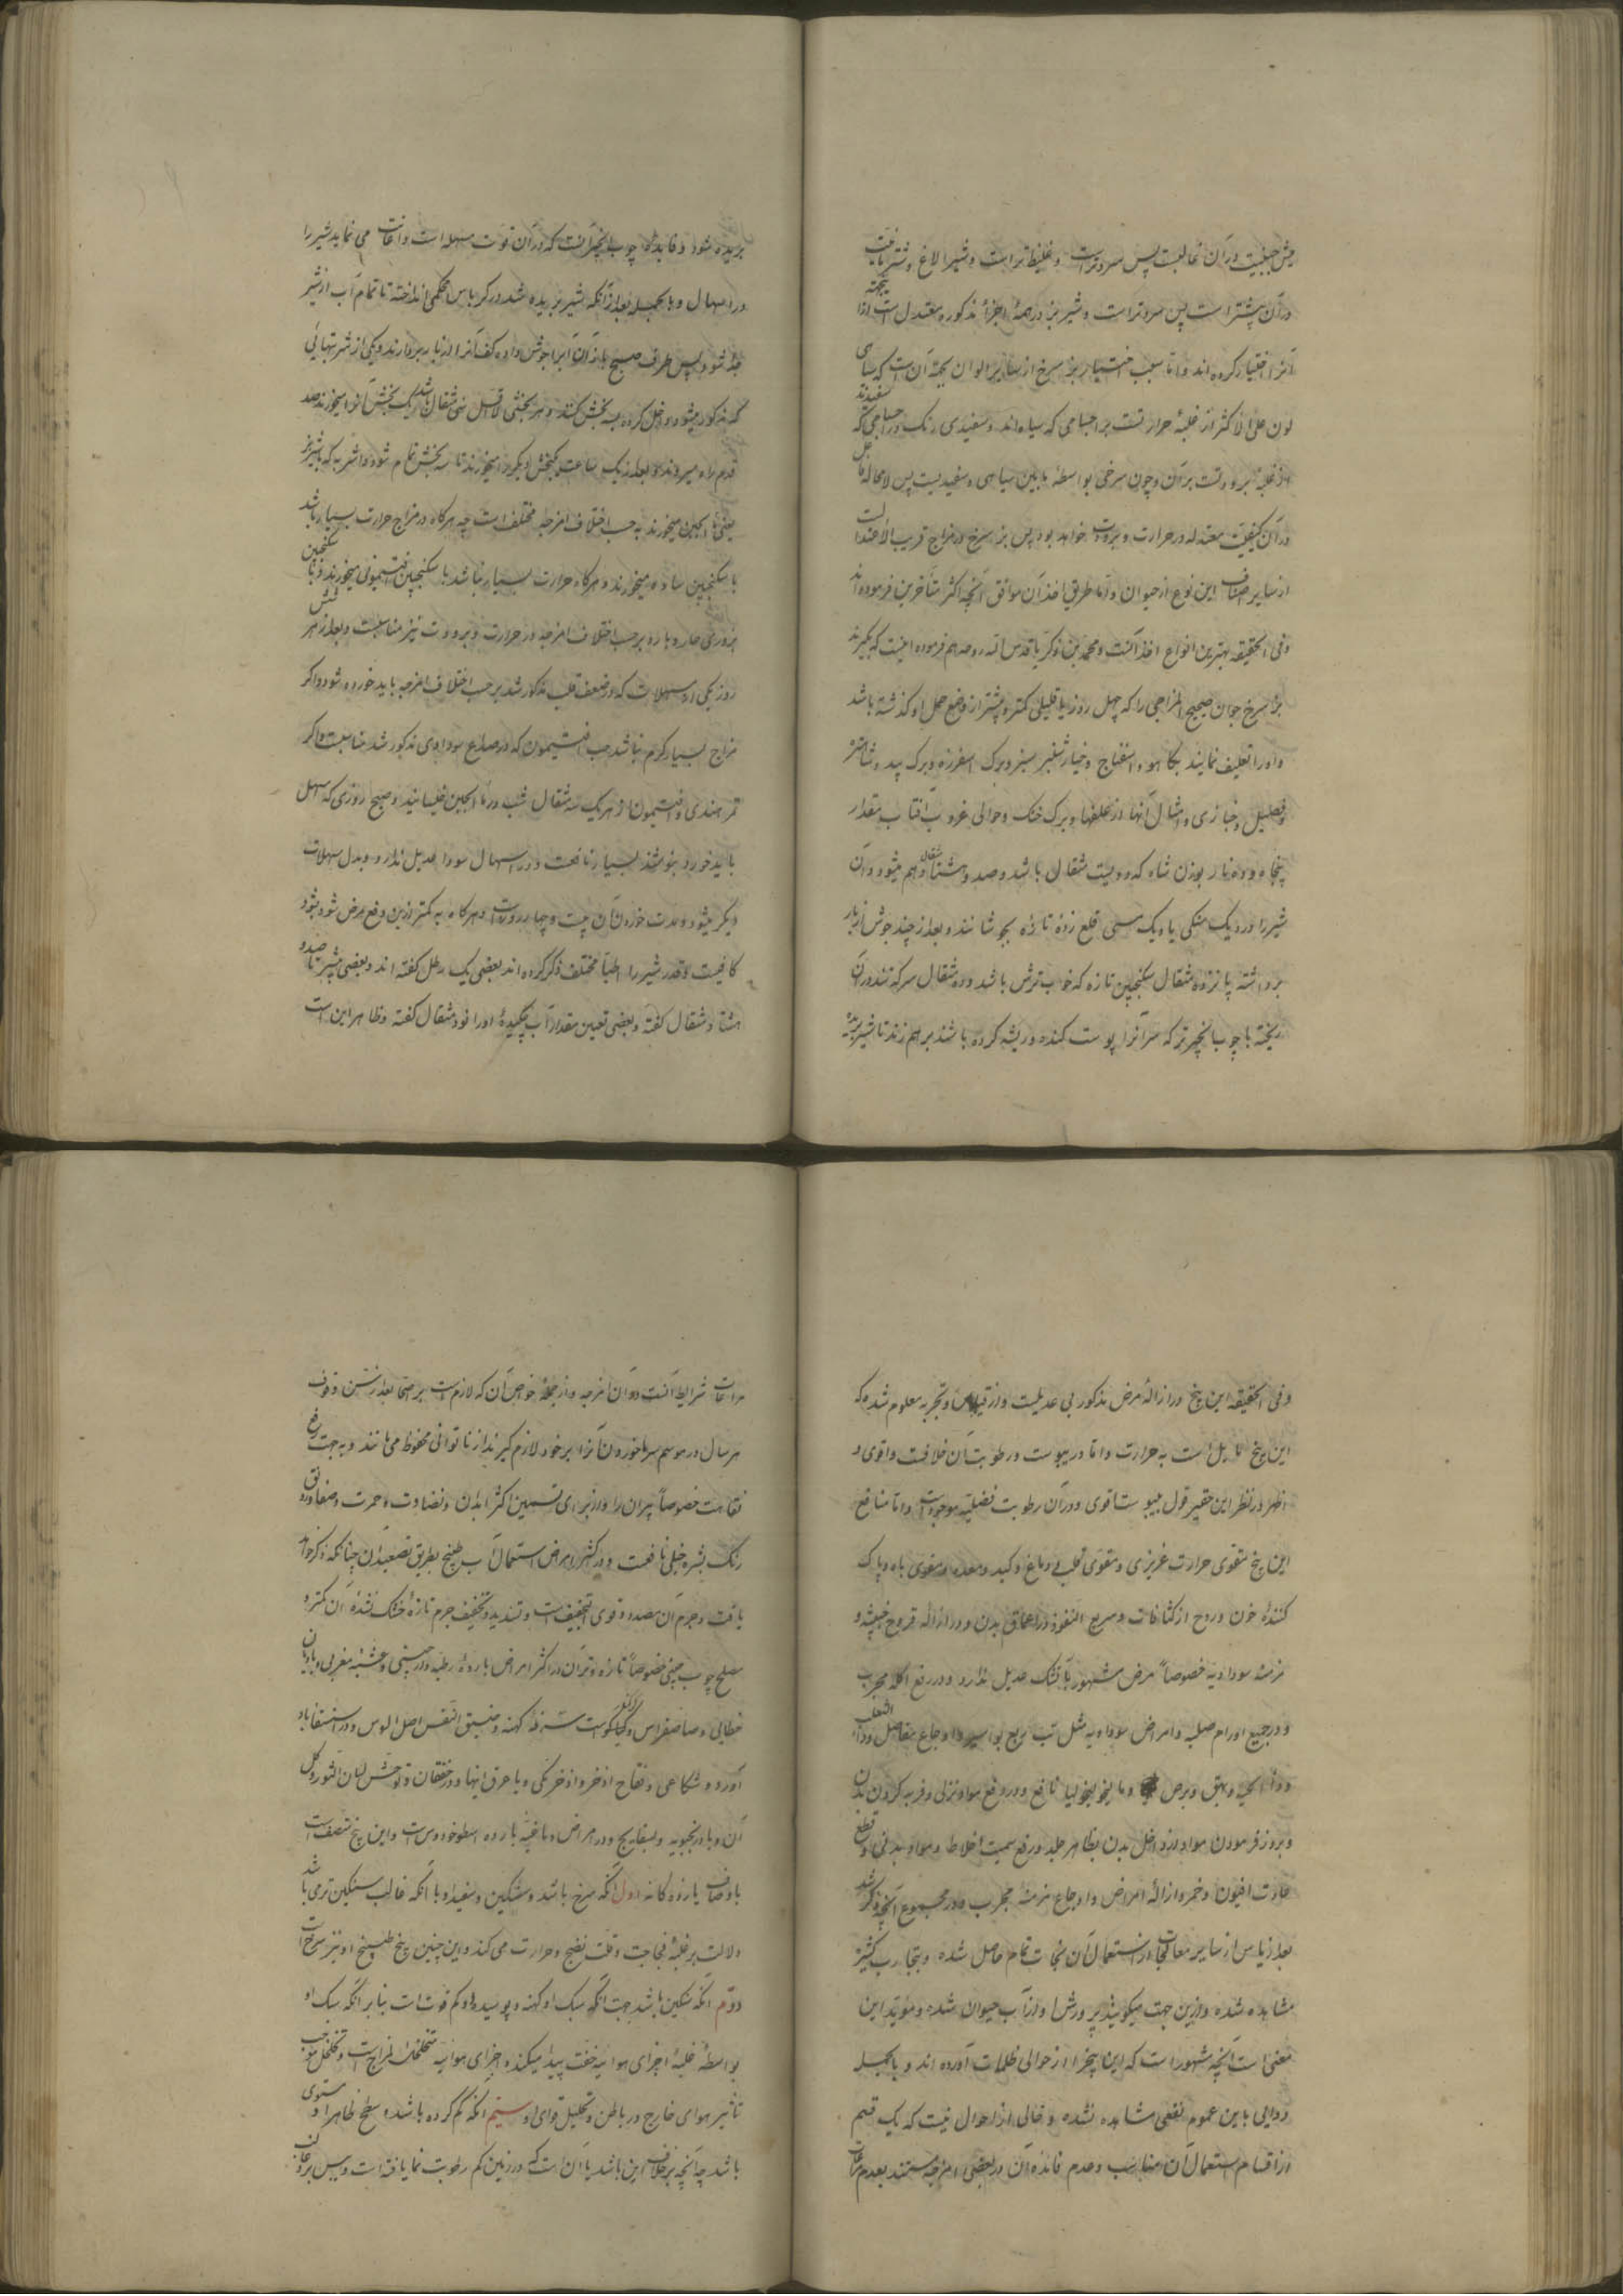 میش جبنیت در آن غالبست پس سردتر است و غلیظ تر است و شیر الاغ و شتر مائیت
در آن بیشتر است پس سردتر است و شیر بز در همهٔ اجزاء مذکوره معتدل است لهذا بجهته
آنرا اختیار کرده اند و اما سبب اختیار بز سرخ از سایر الوان بجهته آن است که سیاهی
لون علی الاکثر از غلبهٔ حرارتست بر اجسامی که سیاه اند و سفیدی رنگ در اجسامی که سفیدند
از غلبهٔ برودتست بر آن و چون سرخی بواسطه مابین سیاهی و سفیدیست پس لامحاله
در آن کیفیت معتدله در حرارت و برودت خواهد بود پس بز سرخ در مزاج قریب الاعتدا لست
از سایر اصناف این نوع از حیوان و اما طریق اخذ آن موافق آنچه اکثر متأخرین فرموده اند
و فی الحقیقه بهترین انواع اخذ آنست و محمد بن زکریا قدس الله روحه هم فرموده اینست که بگیرند
بز سرخ جوان صحیح المزاجی را که چهل روز یا قلیلی کمتر و بیشتر از وضع حمل او گذشته باشد
و او را تعلیف نمایند بکاهو و اسفناج و خیار شنبر سبز و برگ اسفرزه و برگ بید و شاهتره
و قصیل و خبازی و امثال آنها از علفها و برگ خنک و حوالی غروب آفتاب مقدار
پنجاه و دو نار بوزن شاه که دویست مثقال باشد و صد و هشتاد مثقال هم میشود و آن
شیر را در دیک سنکی یا دیک مسی قلع زدهٔ تازه بجوشانند و بعد از چند جوش از بار
برداشته پانزده مثقال سکنجبین تازه که خوب ترش باشد و ده مثقال سرکه تند در آن
ریخته با چوب انجیر تر که سر آنرا پوست کنده و ریشه کرده باشند بر هم زنند تا شیر بریده
بریده شود و فایده چوب انجیر آنست که در آن قوت مسهله است و اعانت می نماید شیر را
در اسهال و بالجمله بعد از آنکه شیر بریده شد در کرباس محکمی انداخته تا تمام آب از شیر
جدا شود پس طرف صبح باز آن آبرا جوش داده کف آنرا از بالا بردارند و یکی از شربتهائی
که مذکور میشود داخل کرده بسه بخش کنند و هر بخشی لااقل سی مثقال باشد و یک بخش آنرا میخورند صد
قدم راه میروند و بعد از یک ساعت بخش دیگر را میخورند تا سه بخش تمام شود و اشربه که با شیر بز
یعنی ماءالجبن میخورند به حسب اختلاف امزجه مختلف است چه هرگاه در مزاج حرارت بسیار باشد
با سکنجبین ساده میخورند و هرگاه حرارت بسیار نباشد با سکنجبین افتیمونی میخورند و با سکنجبین
بزوری حار و بارد بر حسب اختلاف امزجه در حرارت و برودت نیز مناسبست و بعد از هر شش
روز یکی از مسهلات که در ضعف قلب مذکور شد بر حسب اختلاف امزجه باید خورده شود و اگر
مزاج بسیار گرم نباشد حب افتیمون که در صداع سوداوی مذکور شد مناسبست و اگر
تمر هندی و افتیمون از هر یک سه مثقال شب در ماءالجبن خیسانیده و صبح روزی که مسهل
باید خورد بنوشند بسیار نافعست و در اسهال سودا عدیل ندارد و بدل مسهلات
دیگر میشود و مدت خوردن آن بیست و چهار روز است و هرگاه به کمتر ازین دفع مرض شود بنود
کافیست و قدر شیر را اطبا مختلف ذکر کرده اند بعضی یک رطل گفته اند و بعضی بیشتر تا صد و
هشتاد مثقال گفته و بعضی تعیین مقدار آب چکیدهٔ او را نود مثقال گفته و ظاهر این است
و فی الحقیقه این بیخ در ازالهٔ مرض مذکور بی عدیلست و از قیاس و تجربه معلوم شده که
این بیخ مایل است به حرارت و اما در یبوست و رطوبت آن خلافست و اقوی و
اظهر در نظر این حقیر قول بیبوستا قوی و در آن رطوبت فضلیه موجود است و اما منافع
این بیخ مقوی حرارت غریزی و مقوی قلب و دماغ و کبد و معده و مقوی باه و پاک
کنندهٔ خون و روح از کثافات و سریع النفوذ در اعماق بدن و در ازاله قروح خبیثه و
مزمنهٔ سوداویه خصوصاً مرض مشهور بآتشک عدیل ندارد و در رفع اکله مجرب
و در جمیع اورام صلبه و امراض سوداویه مثل تب ربع بواسیر و اوجاع مفاصل و داء الثعلب
و داء الحیه و بهق و برص و مالیخولیا نافع و در دفع مواد نزلی و فربه کردن بدن
و بروز فرمودن مواد از داخل بدن بظاهر جلد و رفع سمیت اخلاط و مواد بدنی و قطع
عادت افیون و خمر و ازالهٔ امراض و اوجاع مزمنه مجرب و در مجموع آنچه ذکر شد
بعد از یاس از سایر معالجات از استعمال آن نجات تمام حاصل شده و بتجارب کثیر
مشاهده شده و ازین جهت میگویند پرورش او از آب حیوان شده و مؤید این
معنی است آنچه مشهور است که این بیخ را از حوالی ظلمات آورده اند و بالجمله
دوایی باین عموم نفعی مشاهده نشده و خالی از احوال نیست که یک قسم
از اقسام استعمال آن مناسب و عدم فائده آن در بعضی امزجه مستند بعدم مراعات
مراعات شرایط آنست در آن امزجه و از جملهٔ خواص آن که لازم است بر صحا بعد از سن وقوف
هر سال در موسم سرما خوردن آنرا بر خود لازم گیرند از ناتوانی محفوظ می مانند و به جهت رفع
نقاهت خصوصاً پیران را و از برای تسمین اکثر ابدان و نضارت و حمرت و صفا و رونق
رنگ بشره خیلی نافعست و در اکثر امراض استعمال آب طبیخ بطریق تصعید آن چنانکه ذکر خواهد
یافت و جرم آن مسدد و قوی التجفیف است و تسدید و تجفیف جرم تازهٔ خشک نشدهٔ آن کمتر و
مصلح چوب چینی خصوصاً تازه و تر آن در اکثر امراض باردهٔ رطبه دارچینی و عشبهٔ مغربی و بادیان
خطایی و صا صفراس و گیاکوست سرفهٔ کهنه و ضیق النفس اصل السوس و در استسقا باد
آورد و شکاعی و نقاح اذخر و اذخر مکی و یا عرق اینها و در خفقان و توحش لسان الثور و گل
آن و بادرنجبویه و بسفایج و در امراض دماغیه بارده اسطوخودوس است و این بیخ متصف است
باوصاف یازده گانه اول آنکه سرخ باشد و سنگین و سفید و با آنکه غالب سنگین تر می باشد
دلالت بر غلبهٔ فجاجت و قلت نضج و حرارت می کند و این چنین بیخ و طبیخ او نیز سرخ است
دوم آنکه سنگین باشد جهت آنکه سبک او کهنه و پوسیده و کم قوت است بنابر آنکه سبک او
بواسطهٔ غلبهٔ اجزای هوائیه خفت پیدا میکند و اجزای هوائیه متخلخلة المزاج است و تخلخل موجب
تاثیر هوای خارج در باطن و تحلیل قوای او سیم آنکه گم کرده باشد و سطح ظاهر او مستوی
باشد چه آنچه بر خلاف این باشد یا آن است که در زمین کم رطوبت نما یافته است و پس برو غالب